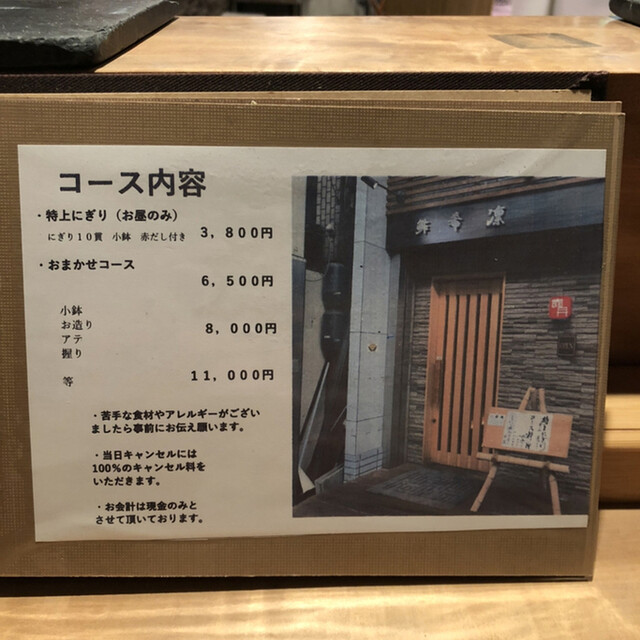 コース内容
・特上にぎり（お昼のみ）
にぎり１０貫　小鉢　赤だし付き　3,800円
・おまかせコース
6,500円
小鉢
お造り　8,000円
アテ
握り
等　11,000円
・苦手な食材やアレルギーがござい
ましたら事前にお伝え願います。
・当日キャンセルには
100%のキャンセル料を
いただきます。
・お会計は現金のみと
させて頂いております。